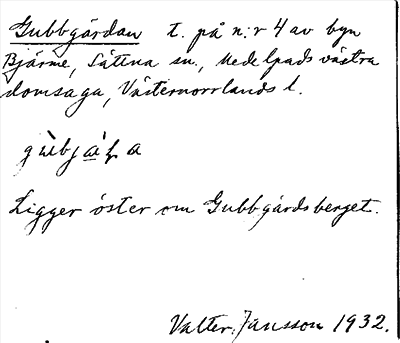 Gubbgårdan t. på n:r 4 av byn
Bjärme, Sättna sn., Medelpads västra
domsaga, Västernorrlands l.
Ligger öster om Gubbgårdsberget.
Valter Jansson 1932.